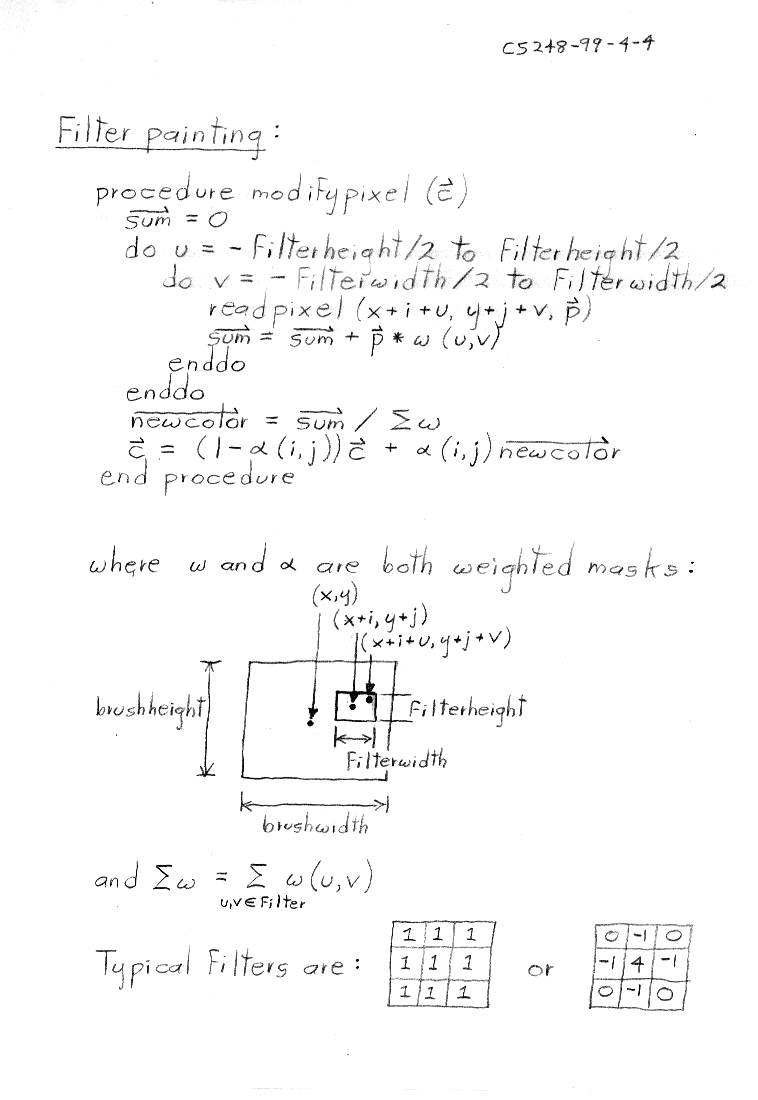 CS248-99-4-4
Filter painting:
procedure modifypixel (c⃗)
s⃗u⃗m⃗ = 0
do u = - Filterheight/2 to Filterheight/2
do v = - Filterwidth/2 to Filterwidth/2
readpixel (x+i+u, y+j+v, p⃗)
s⃗u⃗m⃗ = s⃗u⃗m⃗ + p⃗ * ω (u,v)
enddo
enddo
n⃗e⃗w⃗c⃗o⃗l⃗o⃗r⃗ = s⃗u⃗m⃗ / Σω
c⃗ = (1-α(i,j))c⃗ + α(i,j) n⃗e⃗w⃗c⃗o⃗l⃗o⃗r⃗
end procedure
where ω and α are both weighted masks:
(x,y)
(x+i, y+j)
(x+i+u, y+j+v)
brushheight
Filterheight
Filterwidth
brushwidth
and Σω = Σ ω(u,v)
u,v∈Filter
Typical Filters are:
1 1 1
1 1 1
1 1 1
or
0 -1 0
-1 4 -1
0 -1 0